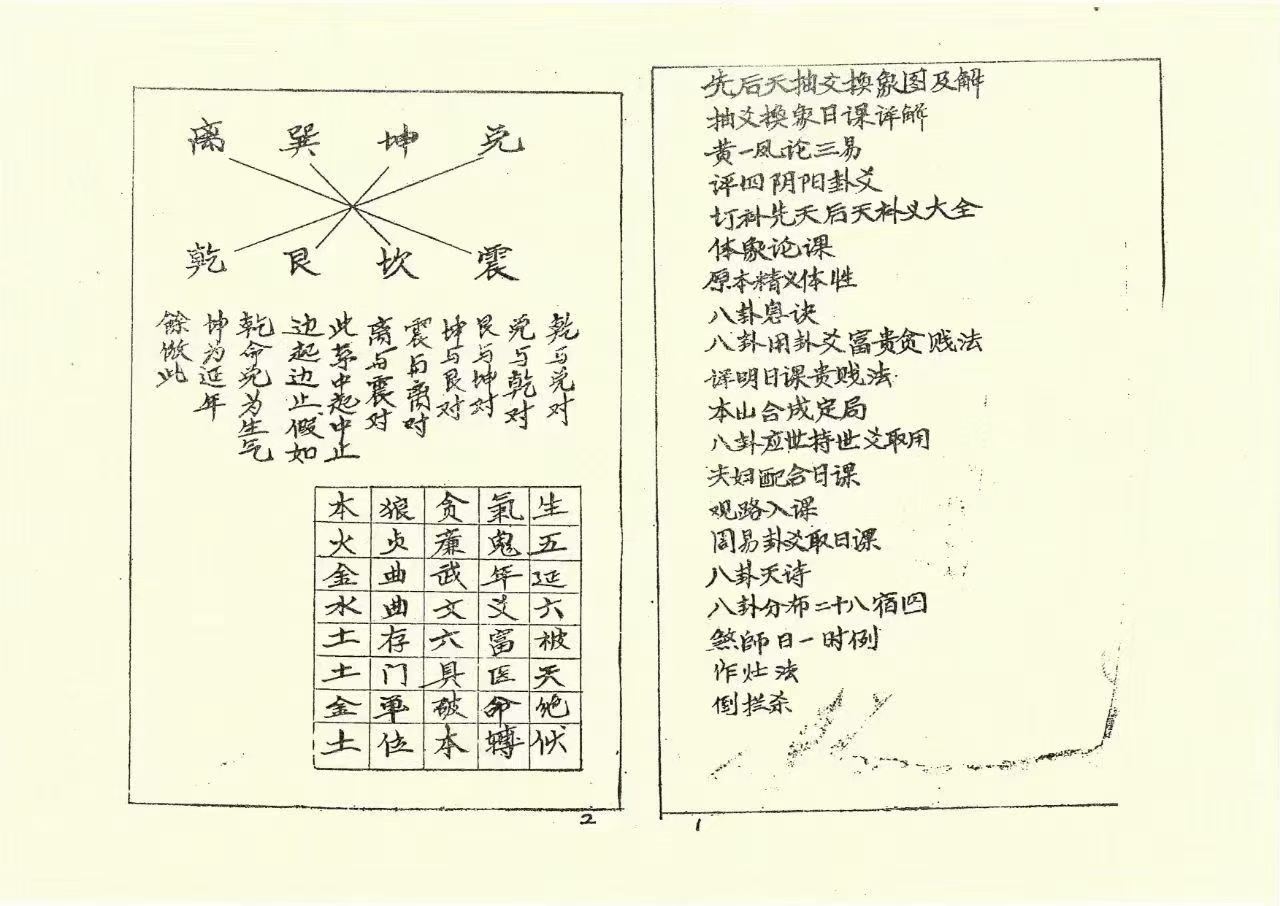 先后天抽爻换象图及解
抽爻换象日课详解
黄一凤论三易
评四阴阳卦爻
订补先天后天科义大全
体象论课
原本精义体性
八卦息诀
八卦用卦爻富贵贫贱法
详明日课贵贱法
本山合成定局
八卦应世持世爻取用
夫妇配合日课
观路入课
周易卦爻取日课
八卦天诗
八卦分布二十八宿四
煞師日一时例
作灶法
倒拦杀
1
离 巽 坤 兑
乾 艮 坎 震
乾与兑对
兑与乾对
艮与坤对
坤与艮对
震与离对
离与震对
此掌中起中止
边起边止假如
乾命兑为生气
坤为延年
餘倣此
生氣贪狼本
五鬼廉贞火
延年武曲金
六爻文曲水
被富六存土
天医具门土
绝命破单金
伏轉本位土
2